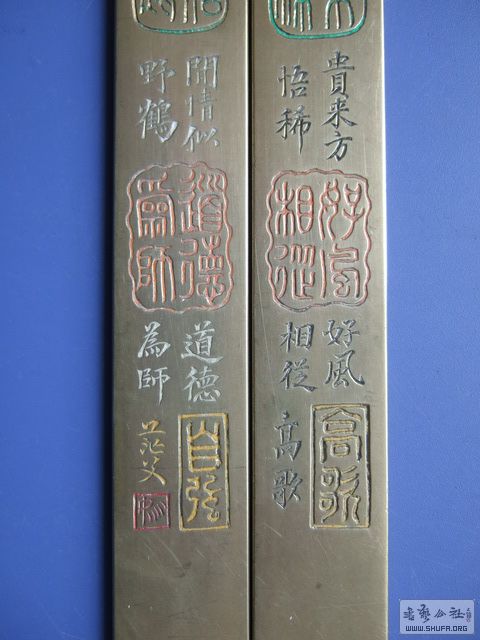 貴来方
悟稀
好風
相從
好風
相從
高歌
高歌
閒情似
野鶴
道德
為師
道德
為師
自強
茫父
WWW.SHUFA.ORG